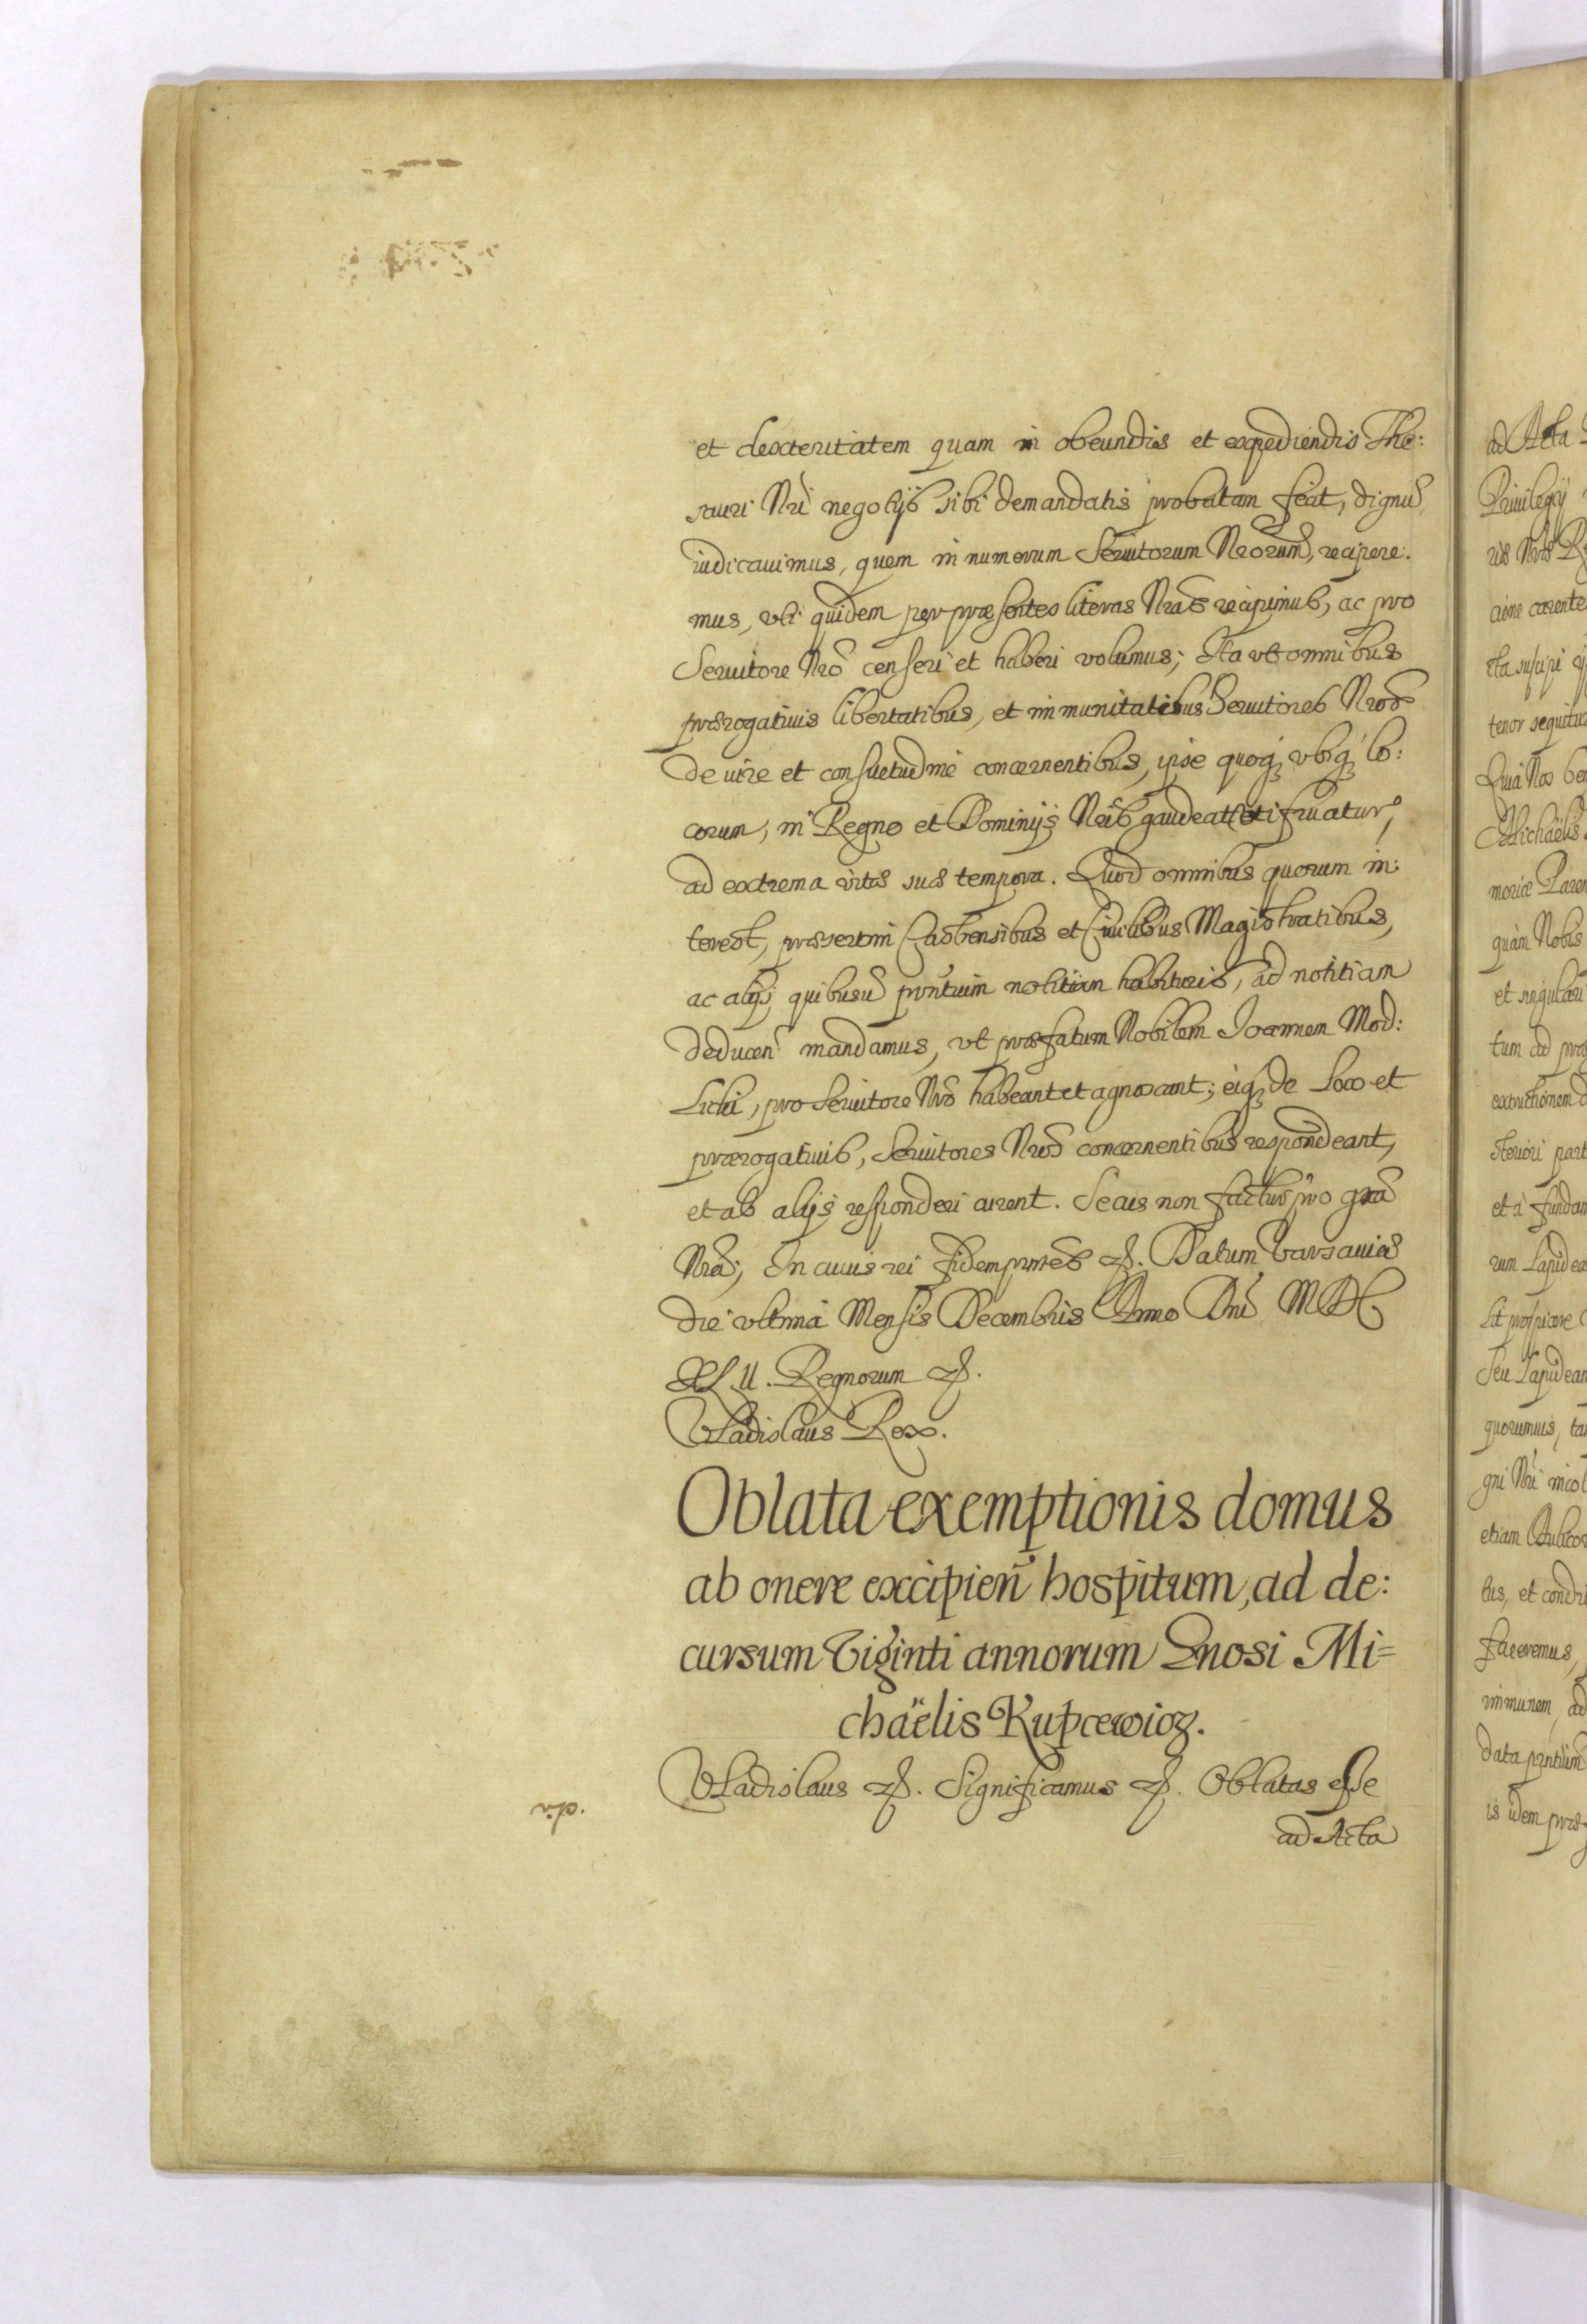 et dexteritatem quam in obeundis et expediendis The:
sauri Nri negotijs sibi demandatis probatam fecit, dignū
iudicauimus, quem in numerum Seruitorum Nrorum, recipere.
mus, vti quidem per præsentes literas Nras recipimus, ac pro
Seruitore Nrõ censeri et haberi volumus; Ita vt omnibus
prærogatiuis libertatibus, et immunitatibus Seruitores Nros
de iure et consuetudine concernentibus, ipse quoq vbiq lo:
corum, in Regno et Dominijs Nris gaudeat et fruatur,
ad extrema vitæ suæ tempora. Quod omnibus quorum in:
terest, præsertim Castrensibus et Ciuilibus Magistratibus,
ac alijs quibusuis pntium notitiam habituris, ad notitiam
deducen mandamus, vt præfatum Nobilem Joannem Mod:
Licki, pro Seruitore Nrõ habeant et agnoscant; eiq de Loco et
prærogatiuis, Seruitores Nros concernentibus respondeant,
et ab alijs responderi curent. Secus non factur pro grã
Nrã; In cuius rei fidem pntes &. Datum Varsauiæ
die vltima Mensis Decembris Anno Dni MDC
XLII. Regnorum &.
Vladislaus Rex.
Oblata exemptionis domus
ab onere excipien̄ hospitum, ad de:
cursum Viginti annorum Gnosi Mi=
chäelis Kupcewicz.
Vladislaus &. Significamus &. Oblatas esse
ad Acta
ad Acta
Priuilegij
ris Nros
carente
suscipi
tenor sequitur
Quia Nos
Michaëlis
moriæ Paren
quàm Nobis
et singulari
tum ad præ
extructionem
steriori part
et à fundam
rum Lapidea
prospicere
Seu Lapidean
quorumuis, ta
gni Nri incol
etiam Aulicor
tus, et condi
faceremus,
immunem, ad
data pntium
is idem præ